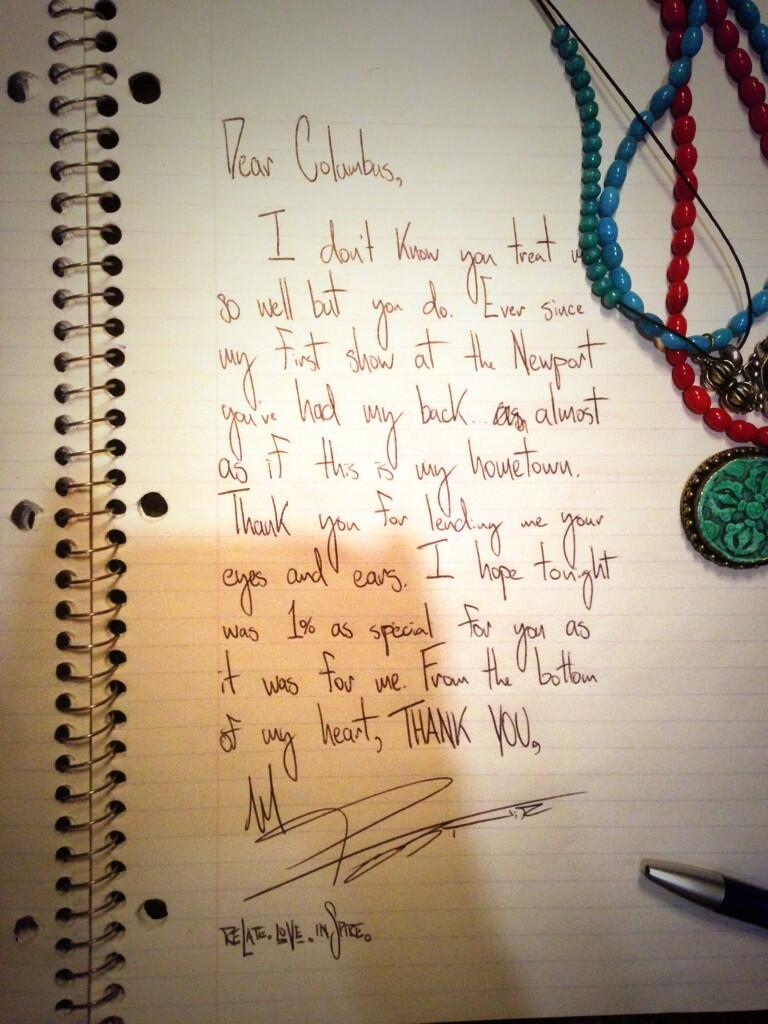 Dear Columbus,
I don't know you treat
so well but you do. Ever since
my first show at the Newport
you've had my back... as almost
as if this is my hometown.
Thank you for lending me your
eyes and ears. I hope tonight
was 1% as special for you as
it was for me. From the bottom
of my heart, THANK YOU,
RELATE. LOVE. INSPIRE.